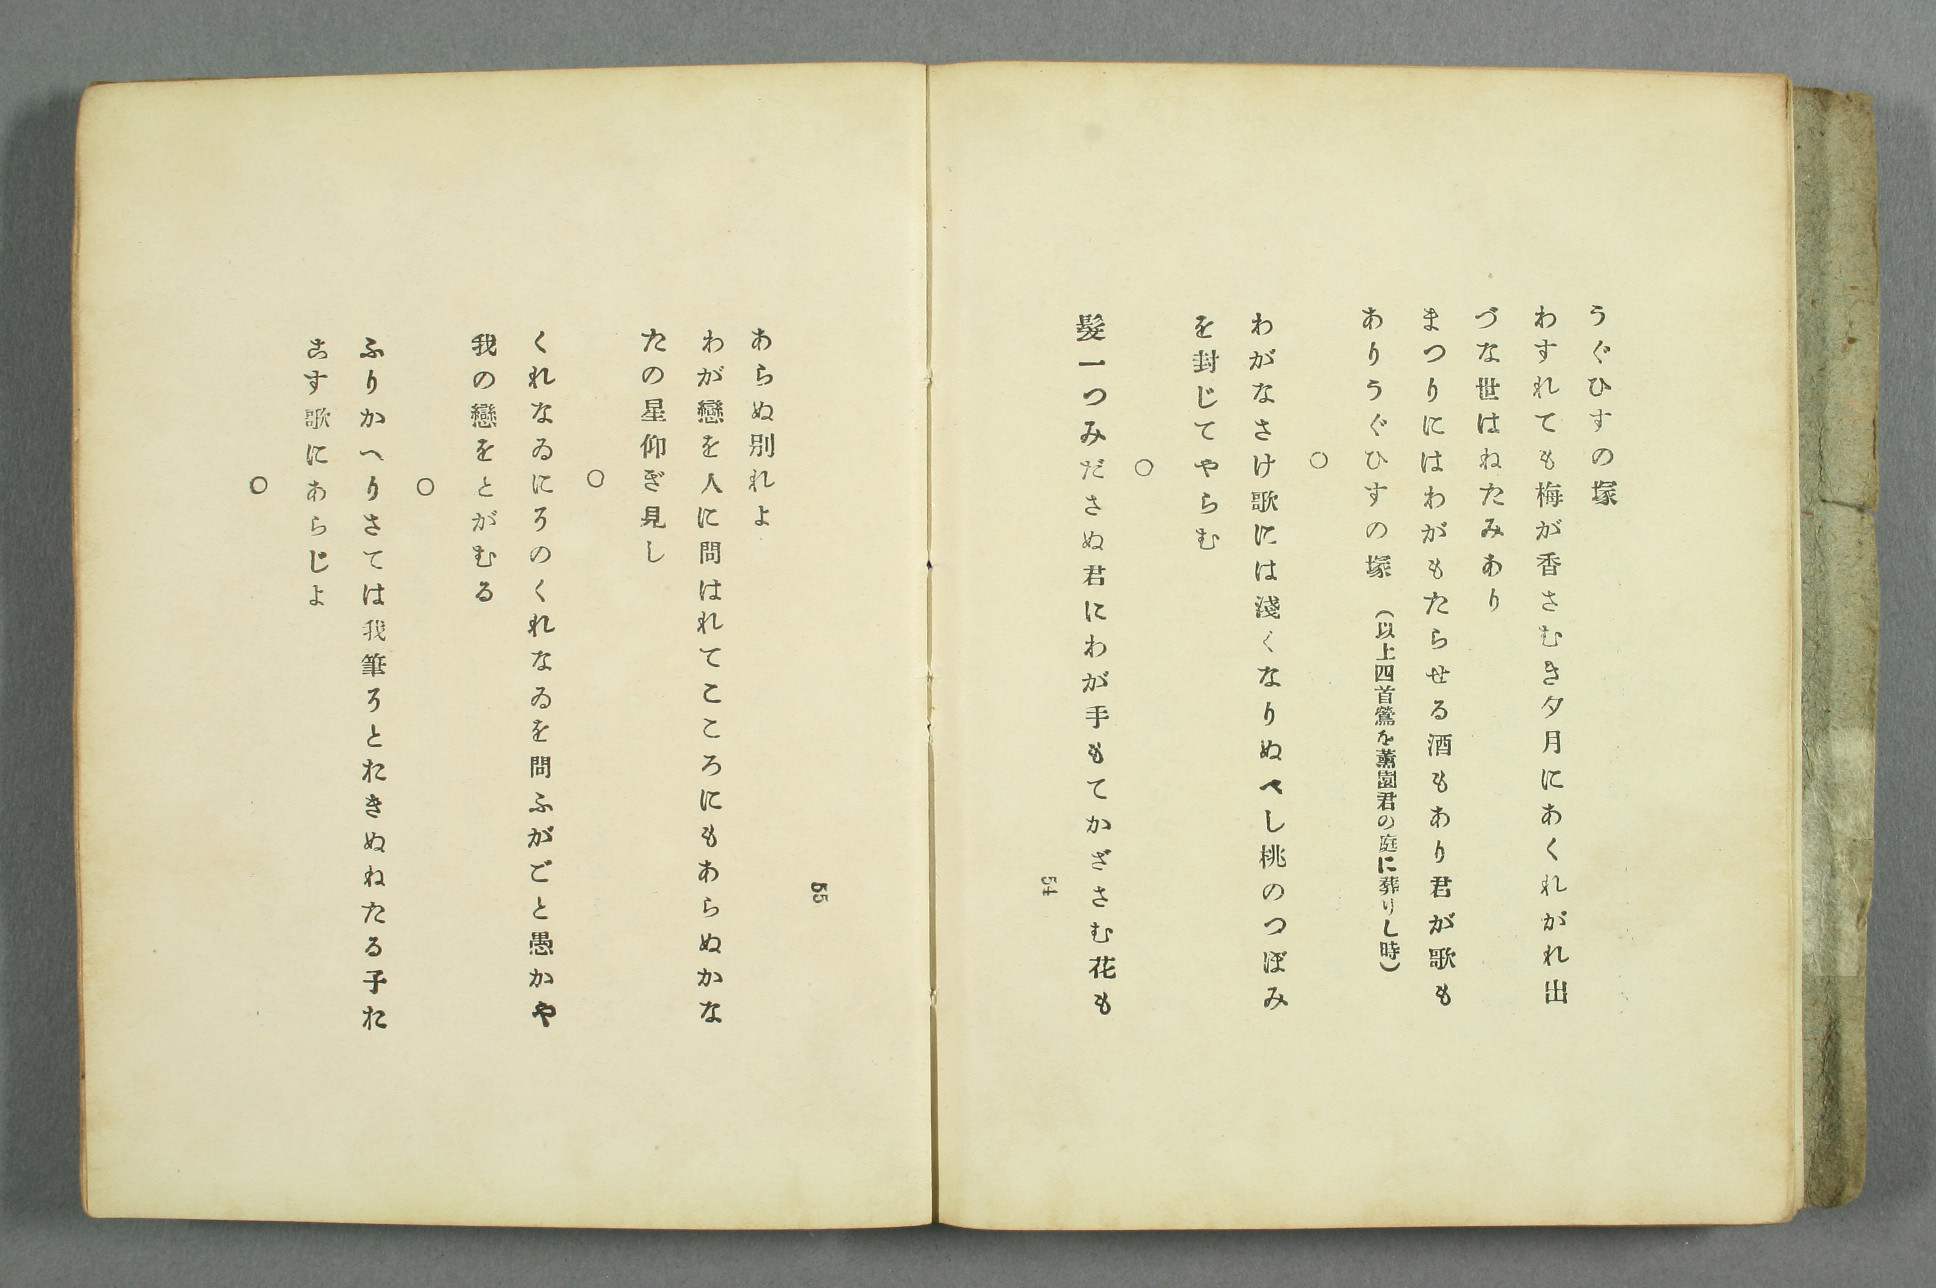 うぐひすの塚
わすれても梅が香さむき夕月にあくれがれ出
づな世はねたみあり
まつりにはわがもたらせる酒もあり君が歌も
ありうぐひすの塚 (以上四首鶯を薫園君の庭に葬りし時)
○
わがなさけ歌には淺くなりぬべし桃のつぼみ
を封じてやらむ
○
髮一つみださぬ君にわが手もてかざさむ花も
54
55
あらぬ別れよ
わが戀を人に問はれてこころにもあらぬかな
たの星仰ぎ見し
○
くれなゐにそのくれなゐを問ふがごと愚かや
我の戀をとがむる
○
ふりかへりさては我筆そとおきぬねたる子お
こす歌にあらじよ
○